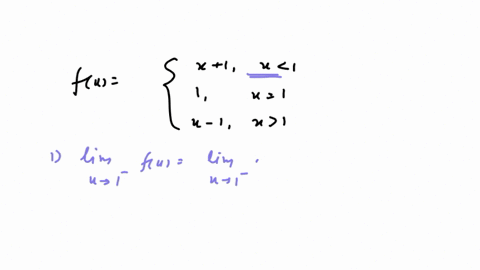 f(x) = { x+1, x<1
1, x=1
x-1, x>1
1) lim x→1⁻ f(x) = lim x→1⁻